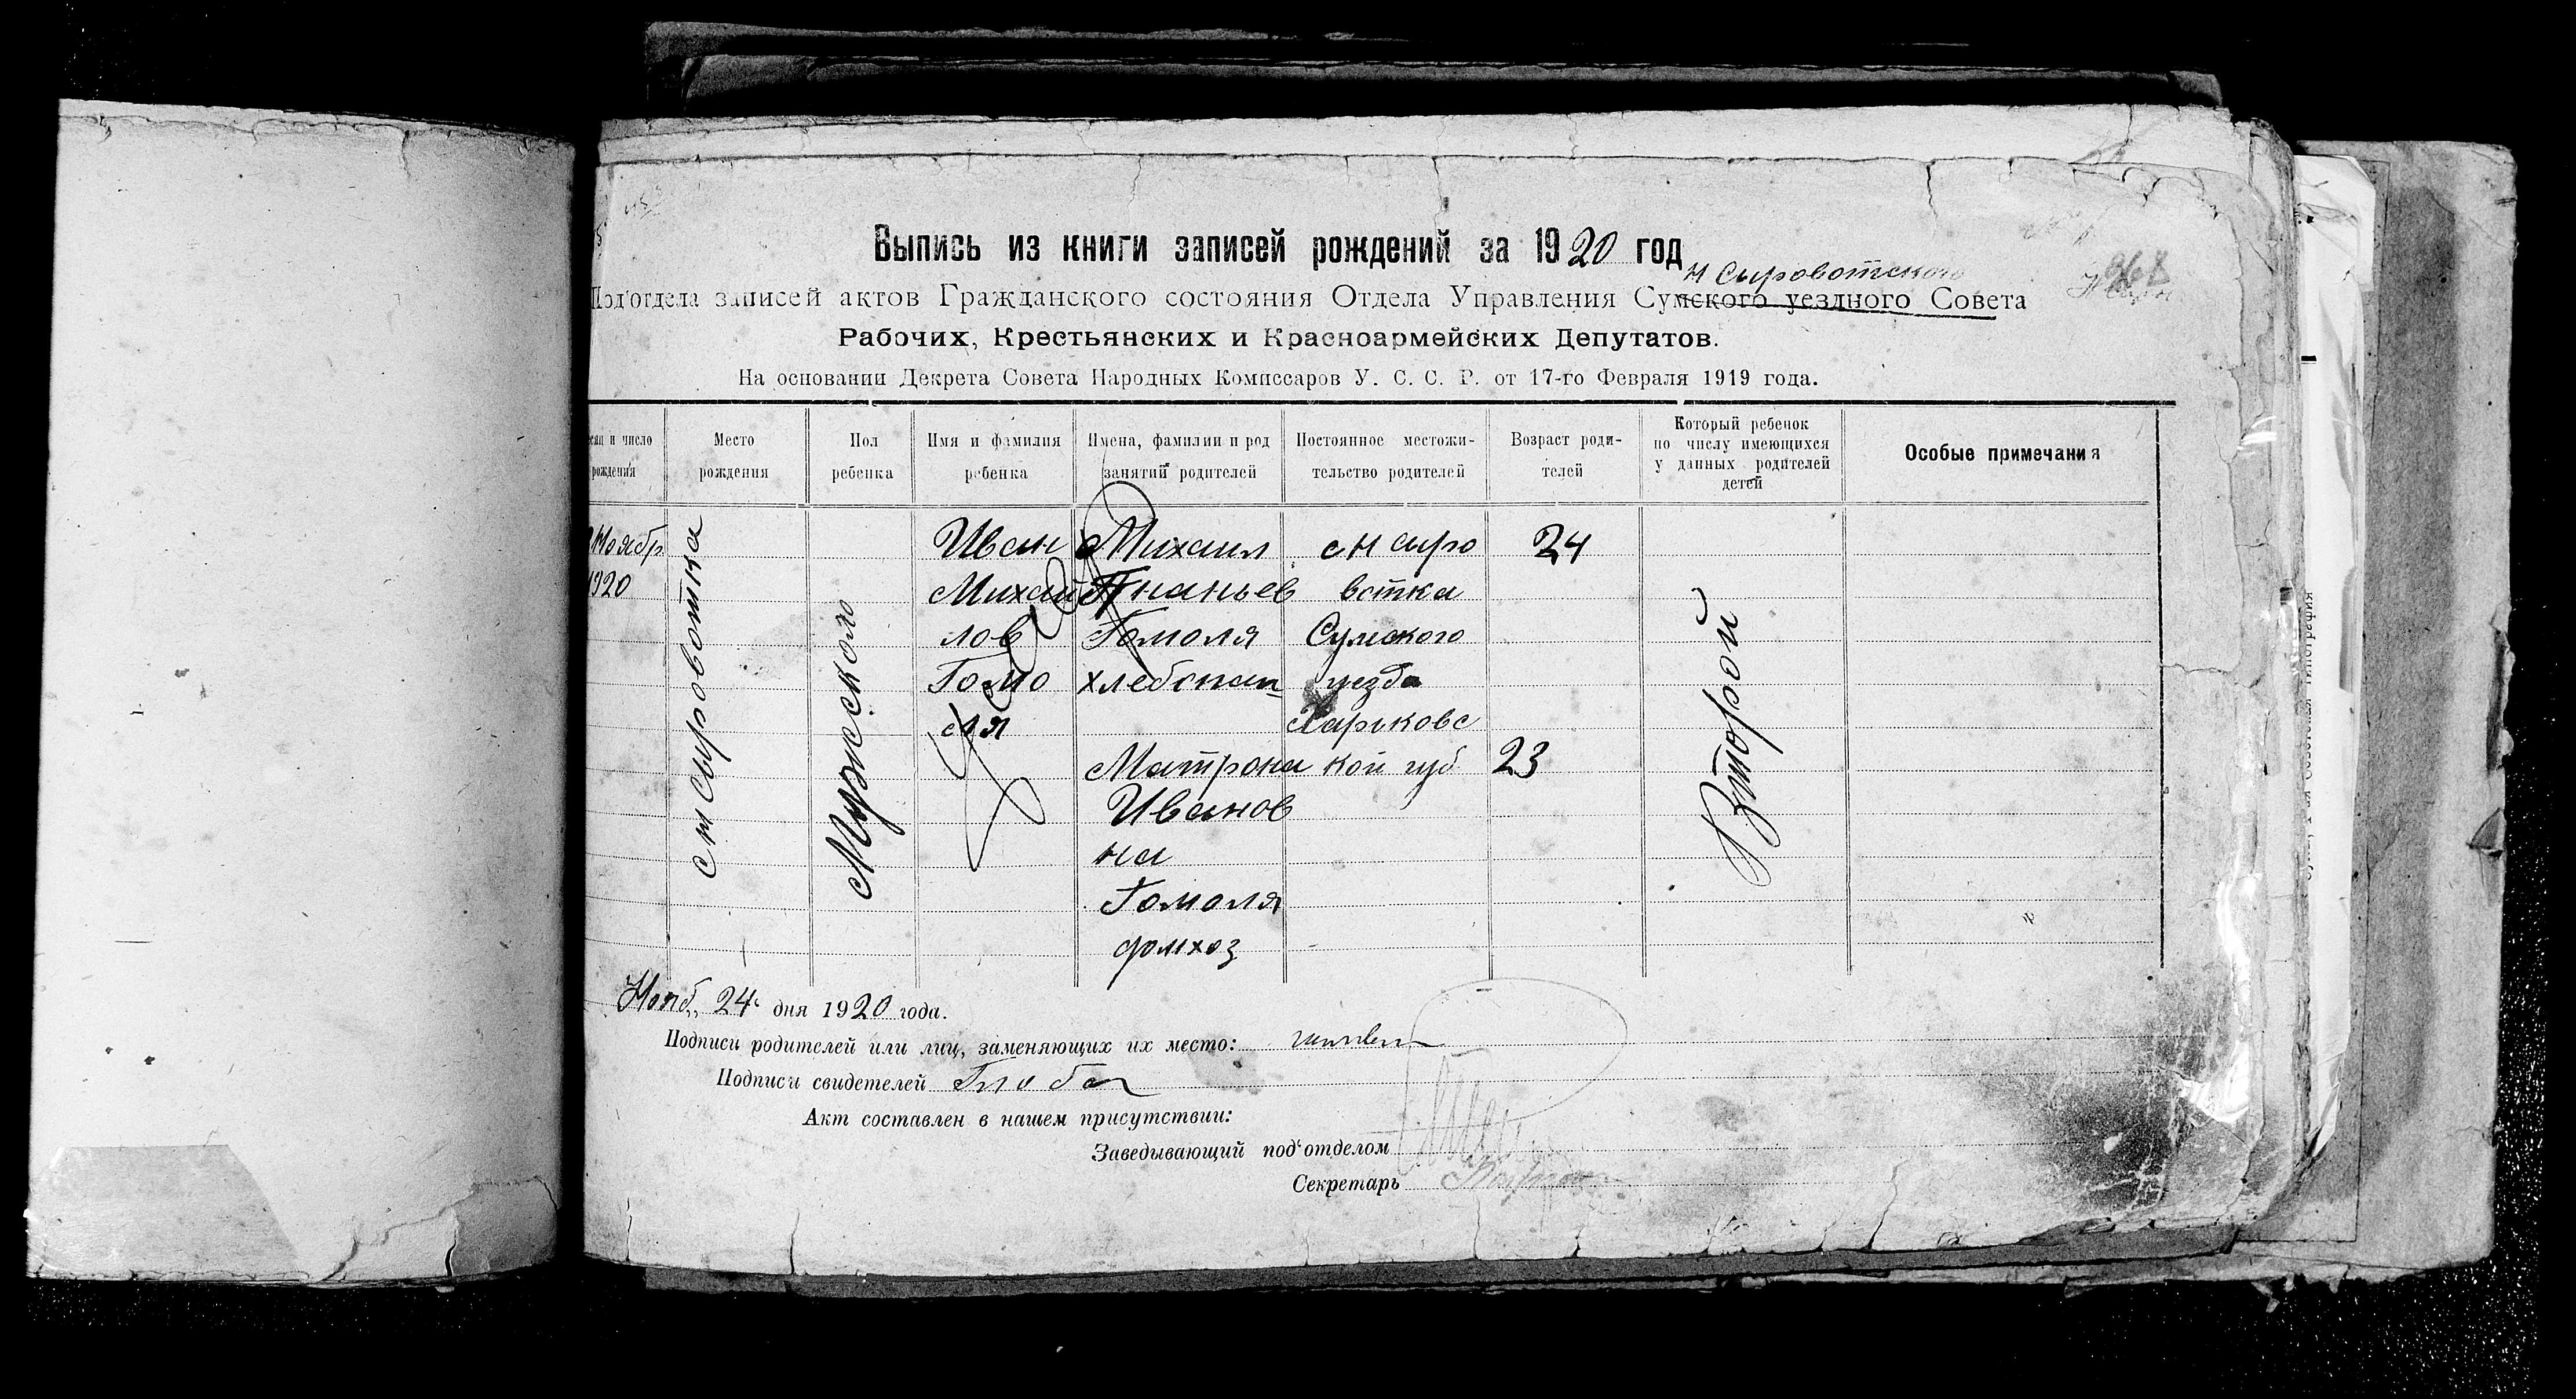 Выпись из книги записей рождений за 1920 год
Н Сыровотского
Под'отдела записей актов Гражданского состояния Отдела Управления Сумского уездного Совета
Рабочих, Крестьянских и Красноармейских Депутатов.
На основании Декрета Совета Народных Комиссаров У. С. С. Р. от 17-го Февраля 1919 года.
сяц и число рождения
Место рождения
Пол ребенка
Имя и фамилия ребенка
Имена, фамилии и род занятий родителей
Постоянное местожительство родителей
Возраст родителей
Который ребенок по числу имеющихся у данных родителей детей
Особые примечания
Ноябр
1920
с н Сыровотка
Мужской
Иван
Михай
лов
Гомо
ля
Михаил
Ананьев
Гомоля
хлебопаш
Матрона
Иванов
на
Гомоля
домхоз
с Н Сыро
вотка
Сумского
уезда
Харьковс
кой губ
24
23
Второй
Нояб. 24 дня 1920 года.
Подписи родителей или лиц, заменяющих их место:
Подписи свидетелей
Акт составлен в нашем присутствии:
Заведывающий под'отделом
Секретарь